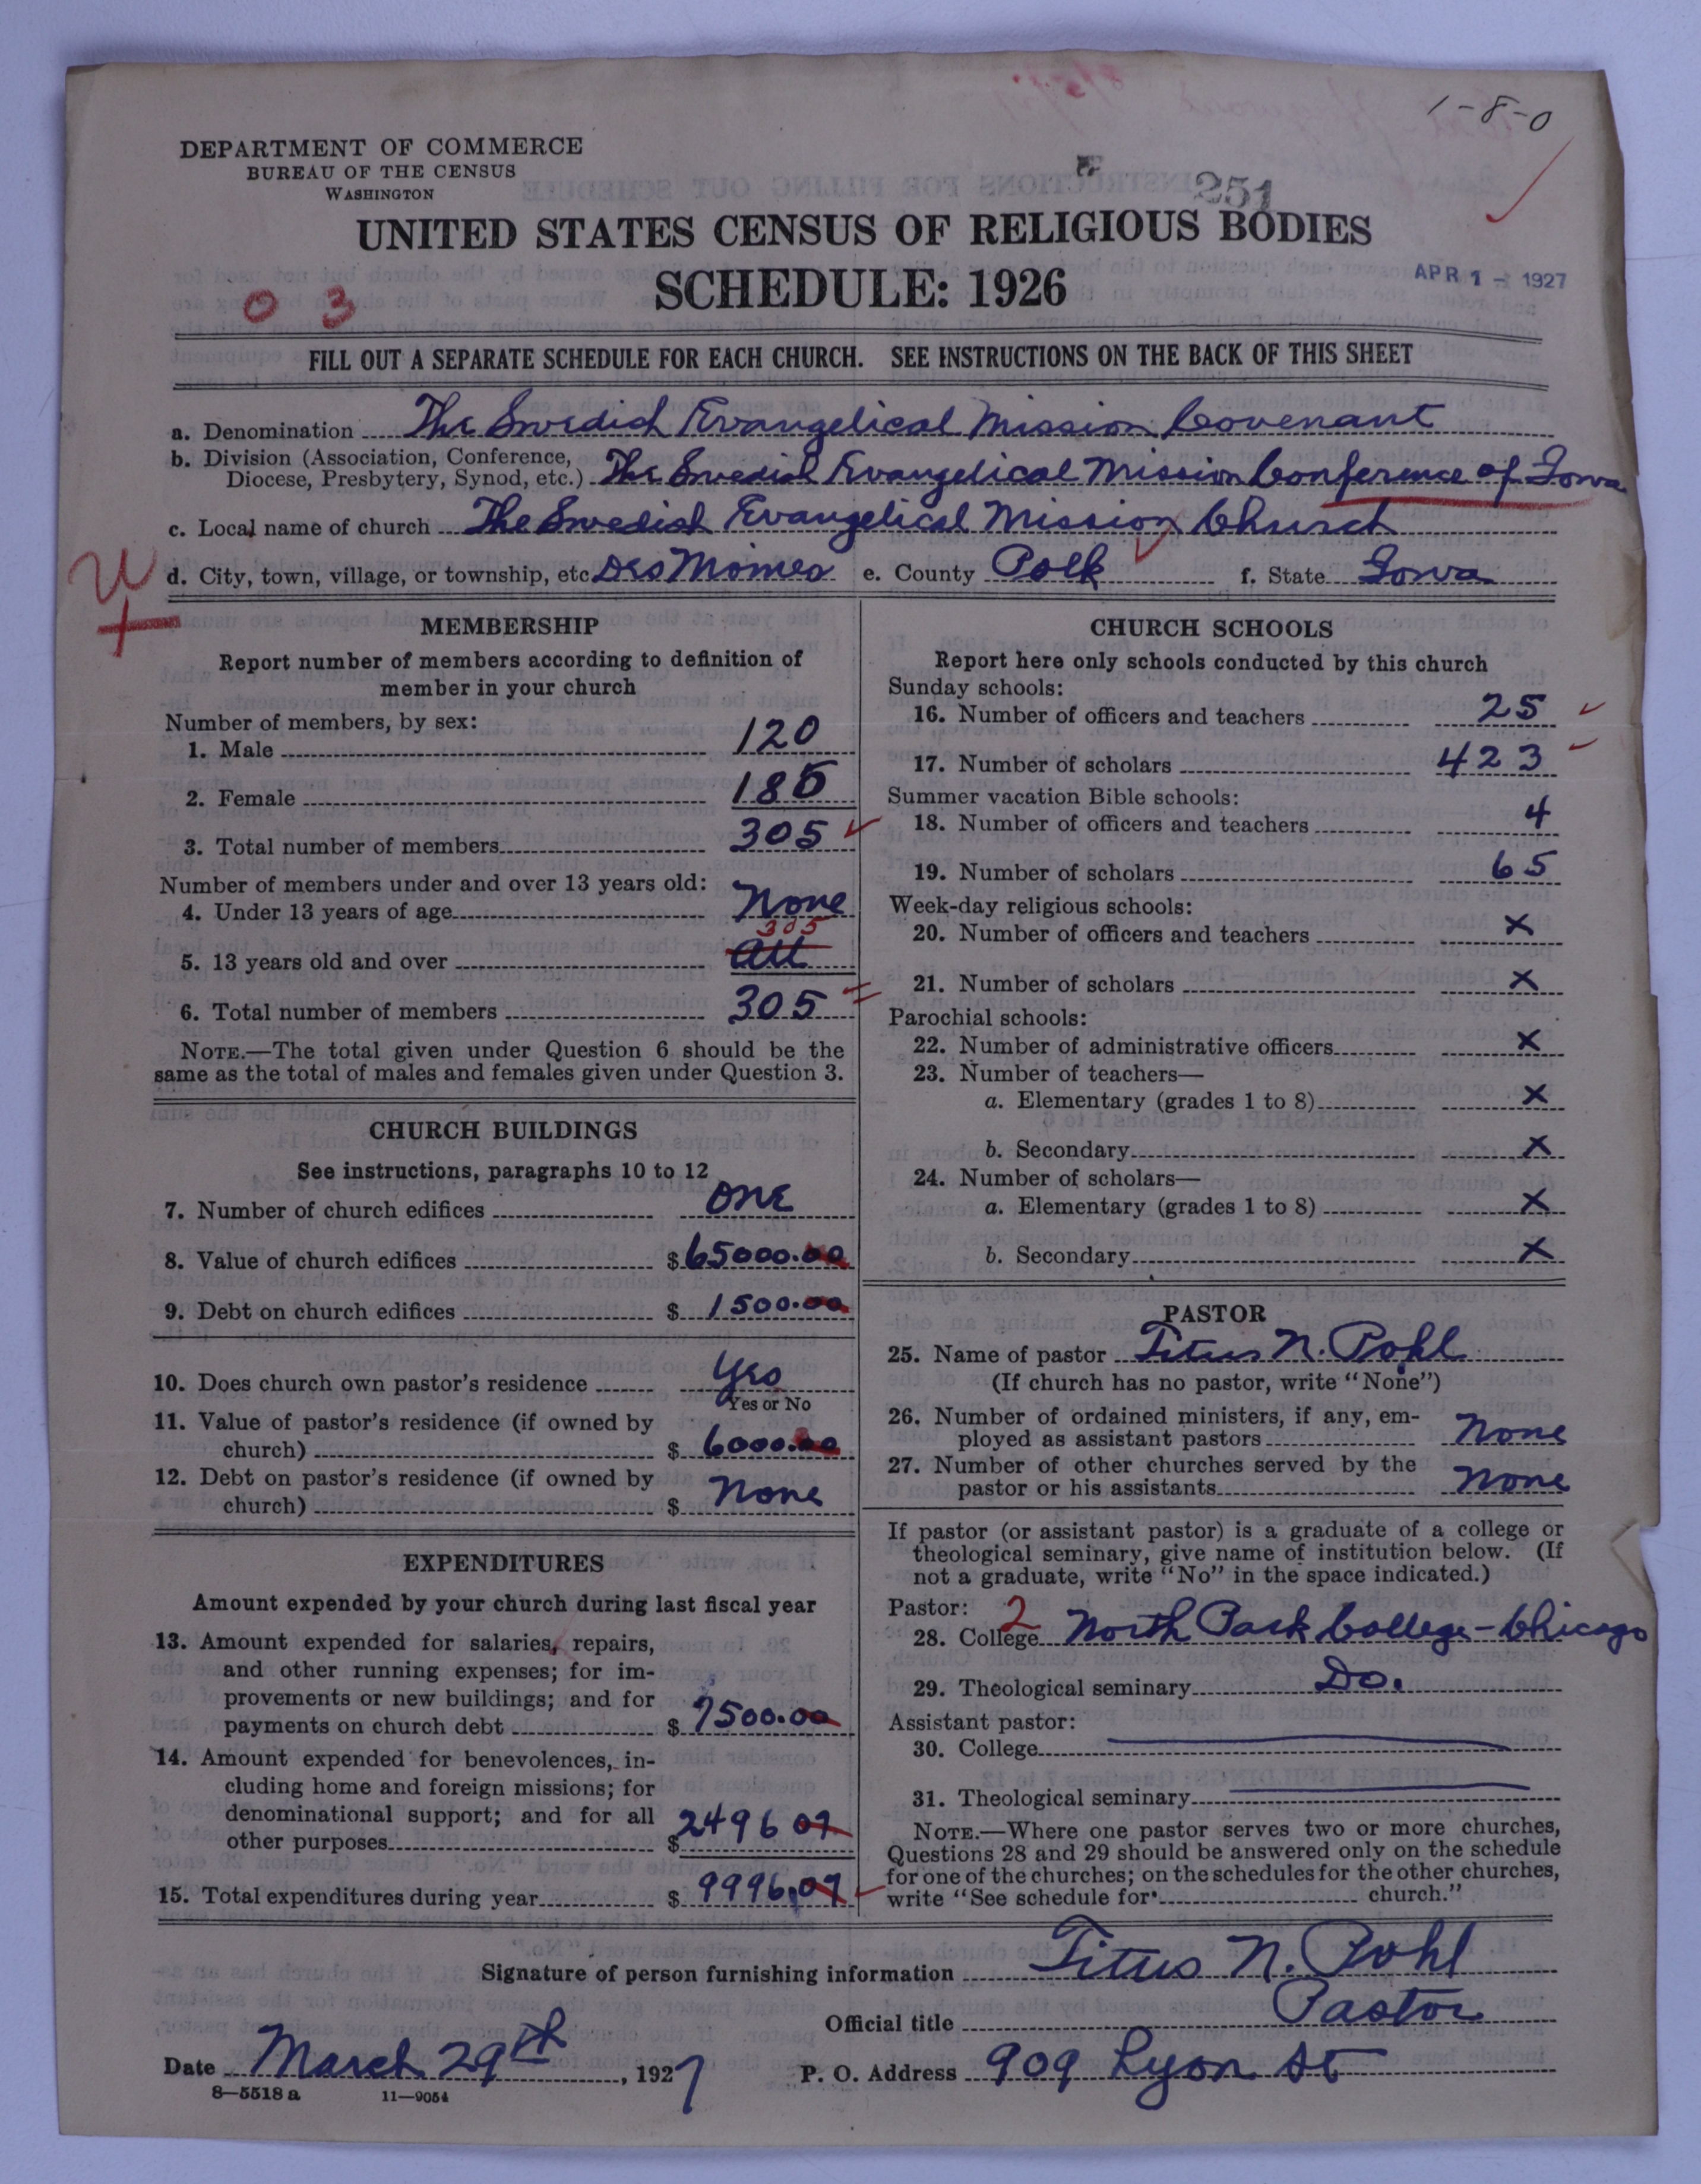 1-8-0
DEPARTMENT OF COMMERCE
BUREAU OF THE CENSUS
WASHINGTON
251
UNITED STATES CENSUS OF RELIGIOUS BODIES
SCHEDULE: 1926
APR 1 - 1927
0 3
FILL OUT A SEPARATE SCHEDULE FOR EACH CHURCH. SEE INSTRUCTIONS ON THE BACK OF THIS SHEET
a. Denomination The Swedish Evangelical Mission Covenant
b. Division (Association, Conference,
Diocese, Presbytery, Synod, etc.) The Swedish Evangelical Mission Conference of Iowa
c. Local name of church The Swedish Evangelical Mission Church
d. City, town, village, or township, etc. Des Moines e. County Polk f. State Iowa
MEMBERSHIP
Report number of members according to definition of
member in your church
Number of members, by sex:
1. Male 120
2. Female 185
3. Total number of members 305
Number of members under and over 13 years old:
4. Under 13 years of age None
305
5. 13 years old and over All
6. Total number of members 305
NOTE.—The total given under Question 6 should be the
same as the total of males and females given under Question 3.
CHURCH BUILDINGS
See instructions, paragraphs 10 to 12
7. Number of church edifices One
8. Value of church edifices $ 65000.00
9. Debt on church edifices $ 1500.00
10. Does church own pastor's residence Yes
Yes or No
11. Value of pastor's residence (if owned by
church) $ 6000.00
12. Debt on pastor's residence (if owned by
church) $ None
EXPENDITURES
Amount expended by your church during last fiscal year
13. Amount expended for salaries, repairs,
and other running expenses; for im-
provements or new buildings; and for
payments on church debt $ 7500.00
14. Amount expended for benevolences, in-
cluding home and foreign missions; for
denominational support; and for all
other purposes $ 2496 07
15. Total expenditures during year $ 9996.07
CHURCH SCHOOLS
Report here only schools conducted by this church
Sunday schools:
16. Number of officers and teachers 25
17. Number of scholars 423
Summer vacation Bible schools:
18. Number of officers and teachers 4
19. Number of scholars 65
Week-day religious schools:
20. Number of officers and teachers X
21. Number of scholars X
Parochial schools:
22. Number of administrative officers X
23. Number of teachers—
a. Elementary (grades 1 to 8) X
b. Secondary X
24. Number of scholars—
a. Elementary (grades 1 to 8) X
b. Secondary X
PASTOR
25. Name of pastor Titus N. Pohl
(If church has no pastor, write "None")
26. Number of ordained ministers, if any, em-
ployed as assistant pastors None
27. Number of other churches served by the
pastor or his assistants None
If pastor (or assistant pastor) is a graduate of a college or
theological seminary, give name of institution below. (If
not a graduate, write "No" in the space indicated.)
Pastor: 2
28. College North Park College - Chicago
29. Theological seminary Do.
Assistant pastor:
30. College
31. Theological seminary
NOTE.—Where one pastor serves two or more churches,
Questions 28 and 29 should be answered only on the schedule
for one of the churches; on the schedules for the other churches,
write "See schedule for church."
Signature of person furnishing information Titus N. Pohl
Official title Pastor
Date March 29th, 1927 P. O. Address 909 Lyon St
8—5518 a 11—9054